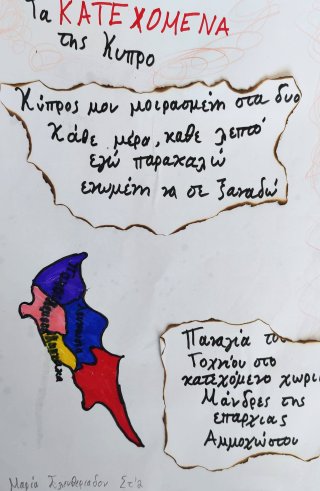 Τα ΚΑΤΕΧΟΜΕΝΑ
της Κυπρο
Κύπρος μου μοιρασμένη στα δυο
Κάθε μέρα, καθε λεπτό
εγώ παρακαλώ
ενωμένη να σε ξαναδώ
Παναγία του
Τοχνίου στο
κατεχόμενο χωριο
Μάνδρες της
επαρχιας
Αμμοχώστου
Μαρία Ελευθεριάδου Στ'2